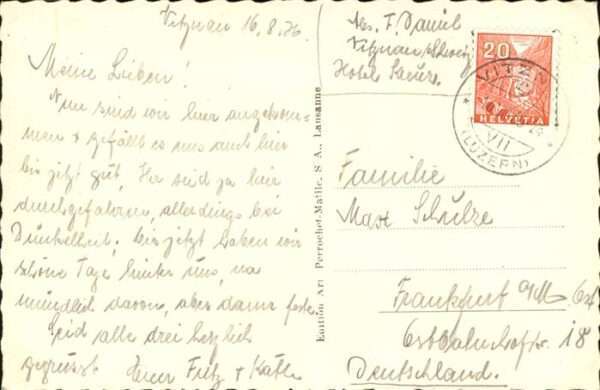 Vitznau 16.8.36.
Meine Lieben!
Nun sind wir hier angekom=
men & gefällt es uns auch hier
bis jetzt gut, Ihr seid ja hier
durchgefahren, allerdings bei
Dunkelheit, bis jetzt haben wir
schöne Tage hinter uns, na
mündlich davon, aber dann
Seid alle drei herzlich
gegrüsst. Euer Fritz & Käthe
Edition Art Perrochet-Matile, S. A., Lausanne
Abs. F. Daniel
Vitznau Schweiz
Hotel
20
HELVETIA
VITZNAU
VII
(LUZERN)
Familie
Max Schulze
Frankfurt a/M Ost
Ostbahnhofstr. 18
Deutschland.